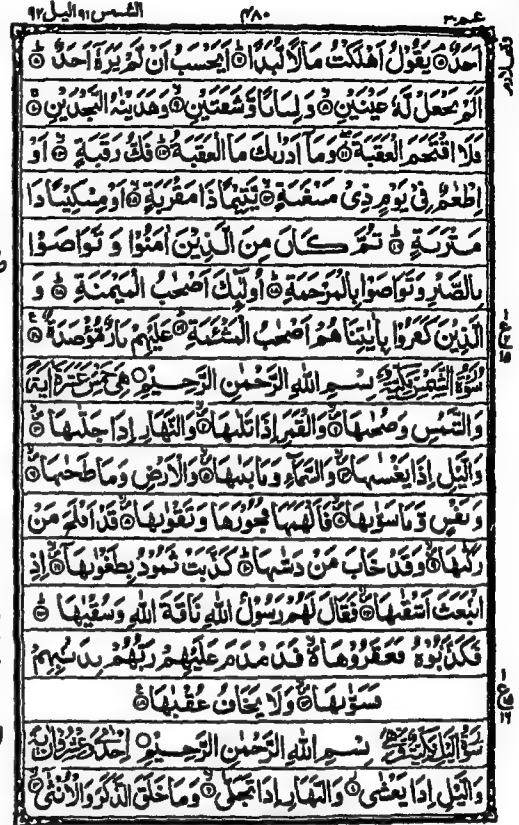 عم ٣٠ ٤٨٠ الشمس ٩١ اليل ٩٢
اَحَدٌ ۝ يَقُوْلُ اَهْلَكْتُ مَالًا لُّبَدًا ۝ اَيَحْسَبُ اَنْ لَّمْ يَرَهٗ اَحَدٌ ۝
اَلَمْ نَجْعَلْ لَّهٗ عَيْنَيْنِ ۝ وَلِسَانًا وَّشَفَتَيْنِ ۝ وَهَدَيْنٰهُ النَّجْدَيْنِ ۝
فَلَا اقْتَحَمَ الْعَقَبَةَ ۝ وَمَآ اَدْرٰىكَ مَا الْعَقَبَةُ ۝ فَكُّ رَقَبَةٍ ۝ اَوْ
اِطْعٰمٌ فِيْ يَوْمٍ ذِيْ مَسْغَبَةٍ ۝ يَّتِيْمًا ذَا مَقْرَبَةٍ ۝ اَوْ مِسْكِيْنًا ذَا
مَتْرَبَةٍ ۝ ثُمَّ كَانَ مِنَ الَّذِيْنَ اٰمَنُوْا وَ تَوَاصَوْا
بِالصَّبْرِ وَتَوَاصَوْا بِالْمَرْحَمَةِ ۝ اُولٰٓئِكَ اَصْحٰبُ الْمَيْمَنَةِ ۝ وَ
الَّذِيْنَ كَفَرُوْا بِاٰيٰتِنَا هُمْ اَصْحٰبُ الْمَشْـَٔمَةِ ۝ عَلَيْهِمْ نَارٌ مُّؤْصَدَةٌ ۝
سُوْرَةُ الشَّمْسِ مَكِّيَّةٌ بِسْمِ اللهِ الرَّحْمٰنِ الرَّحِيْمِ ۝ هِيَ خَمْسَ عَشْرَةَ اٰيَةً
وَالشَّمْسِ وَضُحٰىهَا ۝ وَالْقَمَرِ اِذَا تَلٰىهَا ۝ وَالنَّهَارِ اِذَا جَلّٰىهَا ۝
وَالَّيْلِ اِذَا يَغْشٰىهَا ۝ وَالسَّمَآءِ وَمَا بَنٰىهَا ۝ وَالْاَرْضِ وَمَا طَحٰىهَا ۝
وَنَفْسٍ وَّمَا سَوّٰىهَا ۝ فَاَلْهَمَهَا فُجُوْرَهَا وَتَقْوٰىهَا ۝ قَدْ اَفْلَحَ مَنْ
زَكّٰىهَا ۝ وَقَدْ خَابَ مَنْ دَسّٰىهَا ۝ كَذَّبَتْ ثَمُوْدُ بِطَغْوٰىهَآ ۝ اِذِ
انْۢبَعَثَ اَشْقٰىهَا ۝ فَقَالَ لَهُمْ رَسُوْلُ اللهِ نَاقَةَ اللهِ وَسُقْيٰهَا ۝
فَكَذَّبُوْهُ فَعَقَرُوْهَا ۝ فَدَمْدَمَ عَلَيْهِمْ رَبُّهُمْ بِذَنْۢبِهِمْ
فَسَوّٰىهَا ۝ وَلَا يَخَافُ عُقْبٰهَا ۝
بِسْمِ اللهِ الرَّحْمٰنِ الرَّحِيْمِ ۝
وَالَّيْلِ اِذَا يَغْشٰى ۝ وَالنَّهَارِ اِذَا تَجَلّٰى ۝ وَمَا خَلَقَ الذَّكَرَ وَالْاُنْثٰى ۝